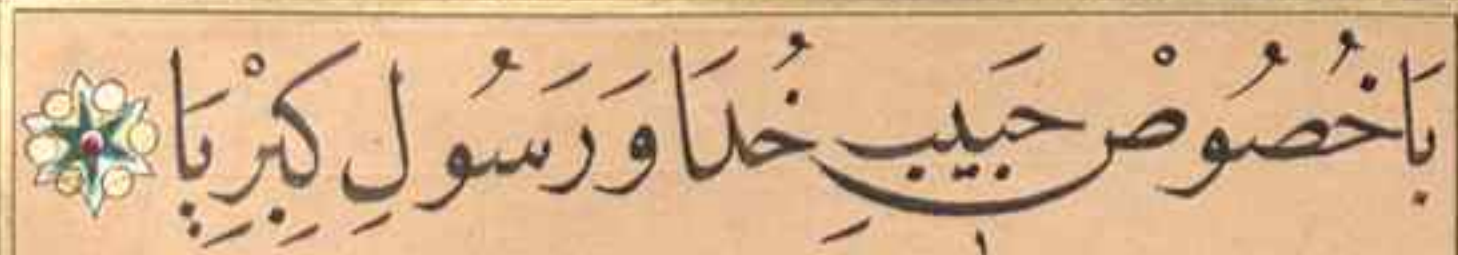 بَاخُصُوصْ حَبِيبِ خُدَا وَرَسُولِ كِبْرِيَا